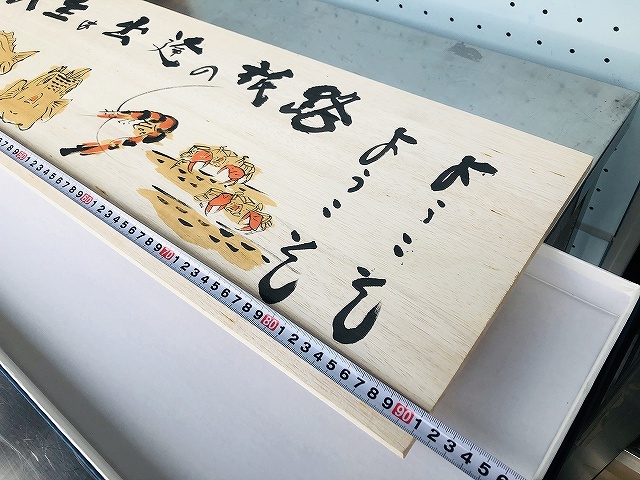 生は出逢の旅路
ようこそ
ようこそ
7 8 9 50 1 2 3 4 5 6 7 8 9 60 1 2 3 4 5 6 7 8 9 70 1 2 3 4 5 6 7 8 9 80 1 2 3 4 5 6 7 8 9 90 1 2 3 4 5 6